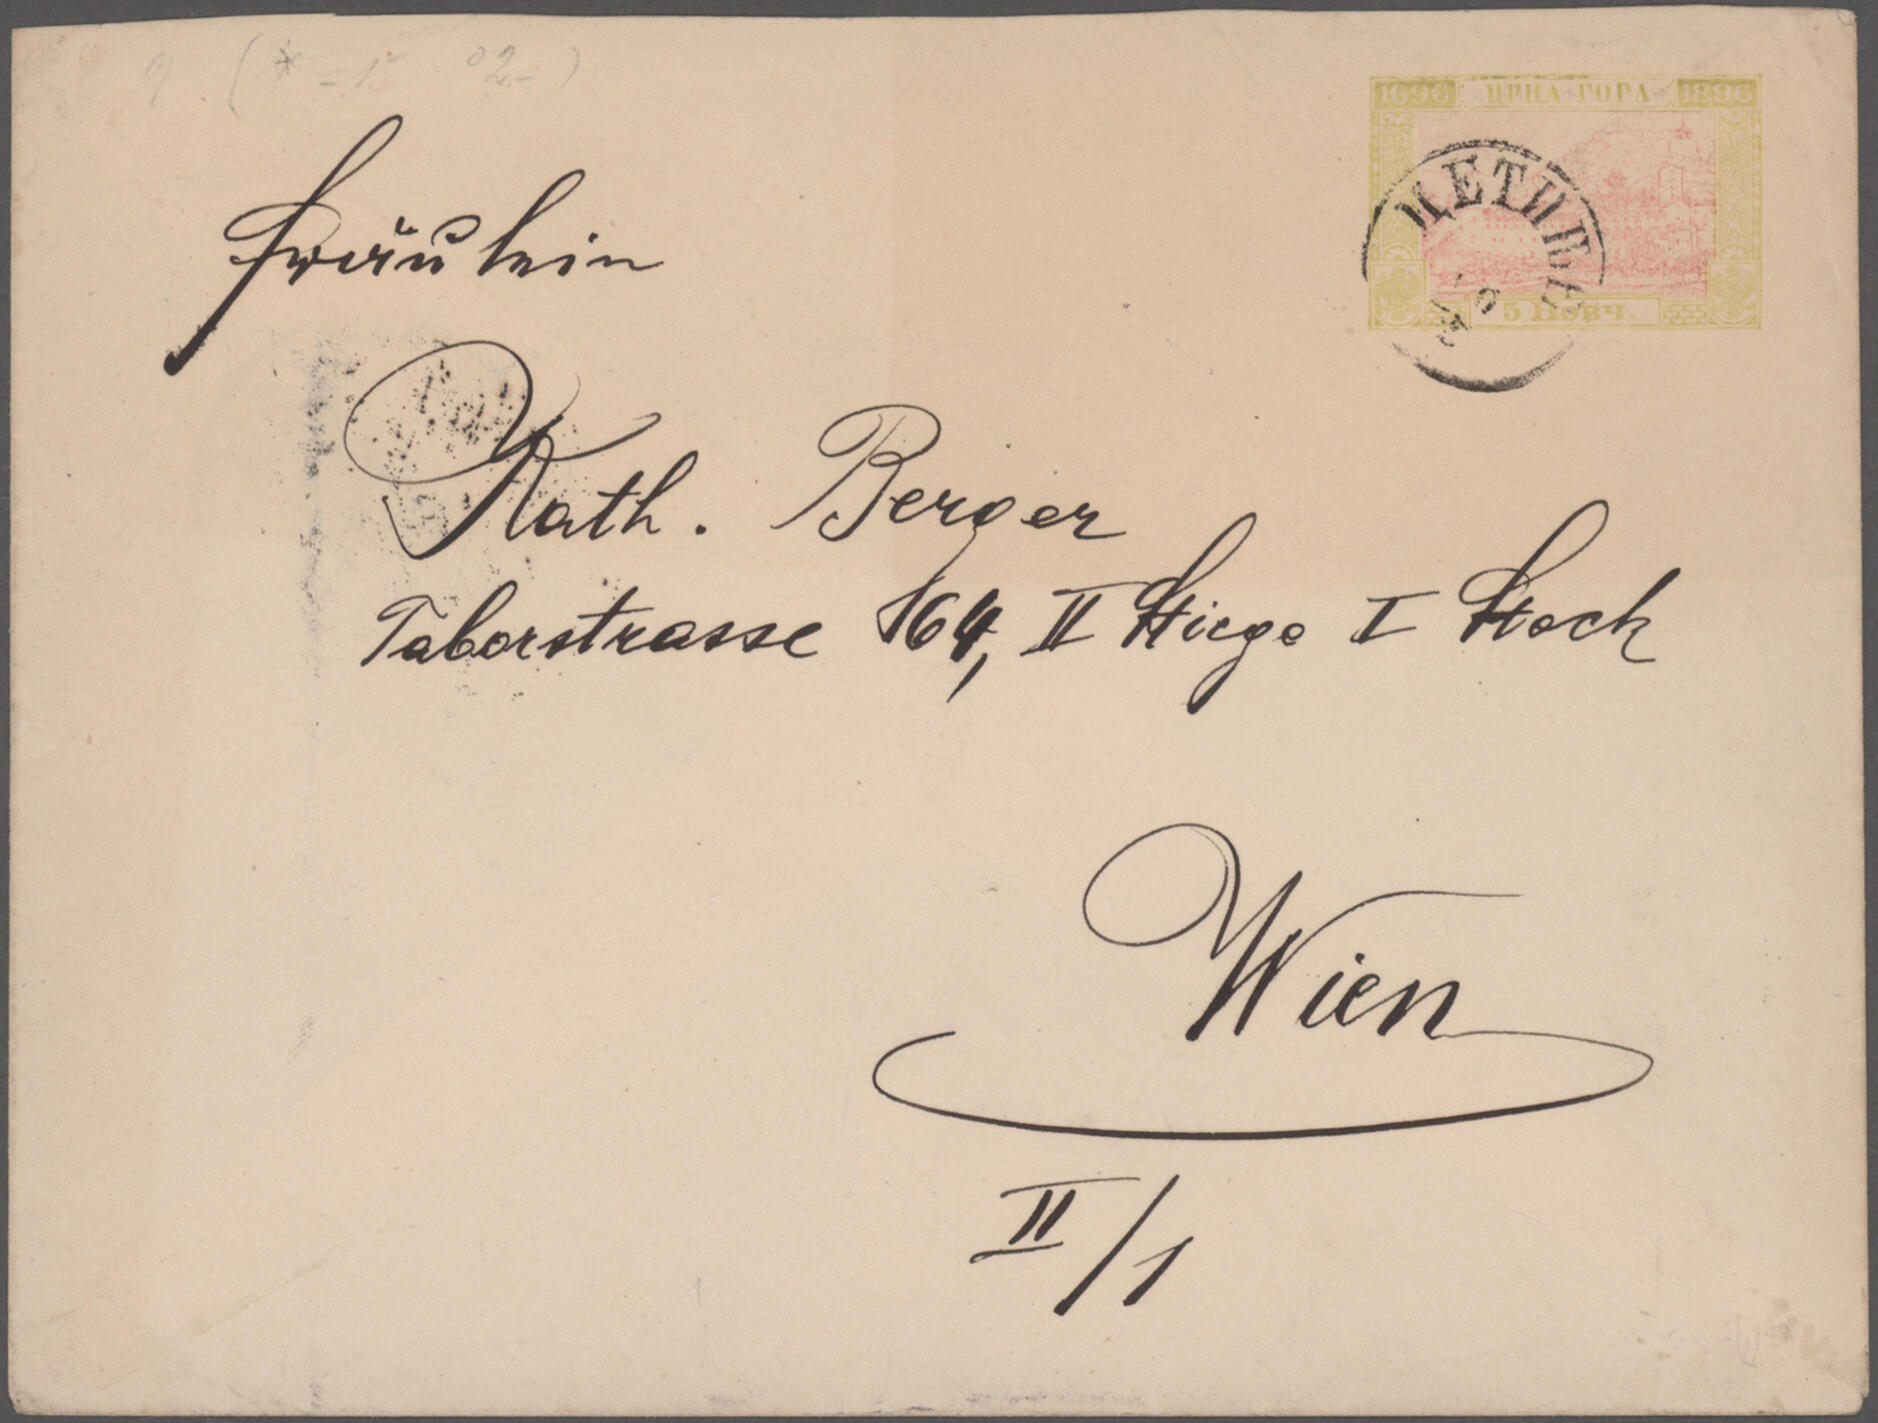 1696 ЦРНА ГОРА 1896
ЦЕТИЊЕ
5 Новч.
Fräulein
Kath. Berger
Taborstrasse 64, II Stiege I Stock
Wien
II/1